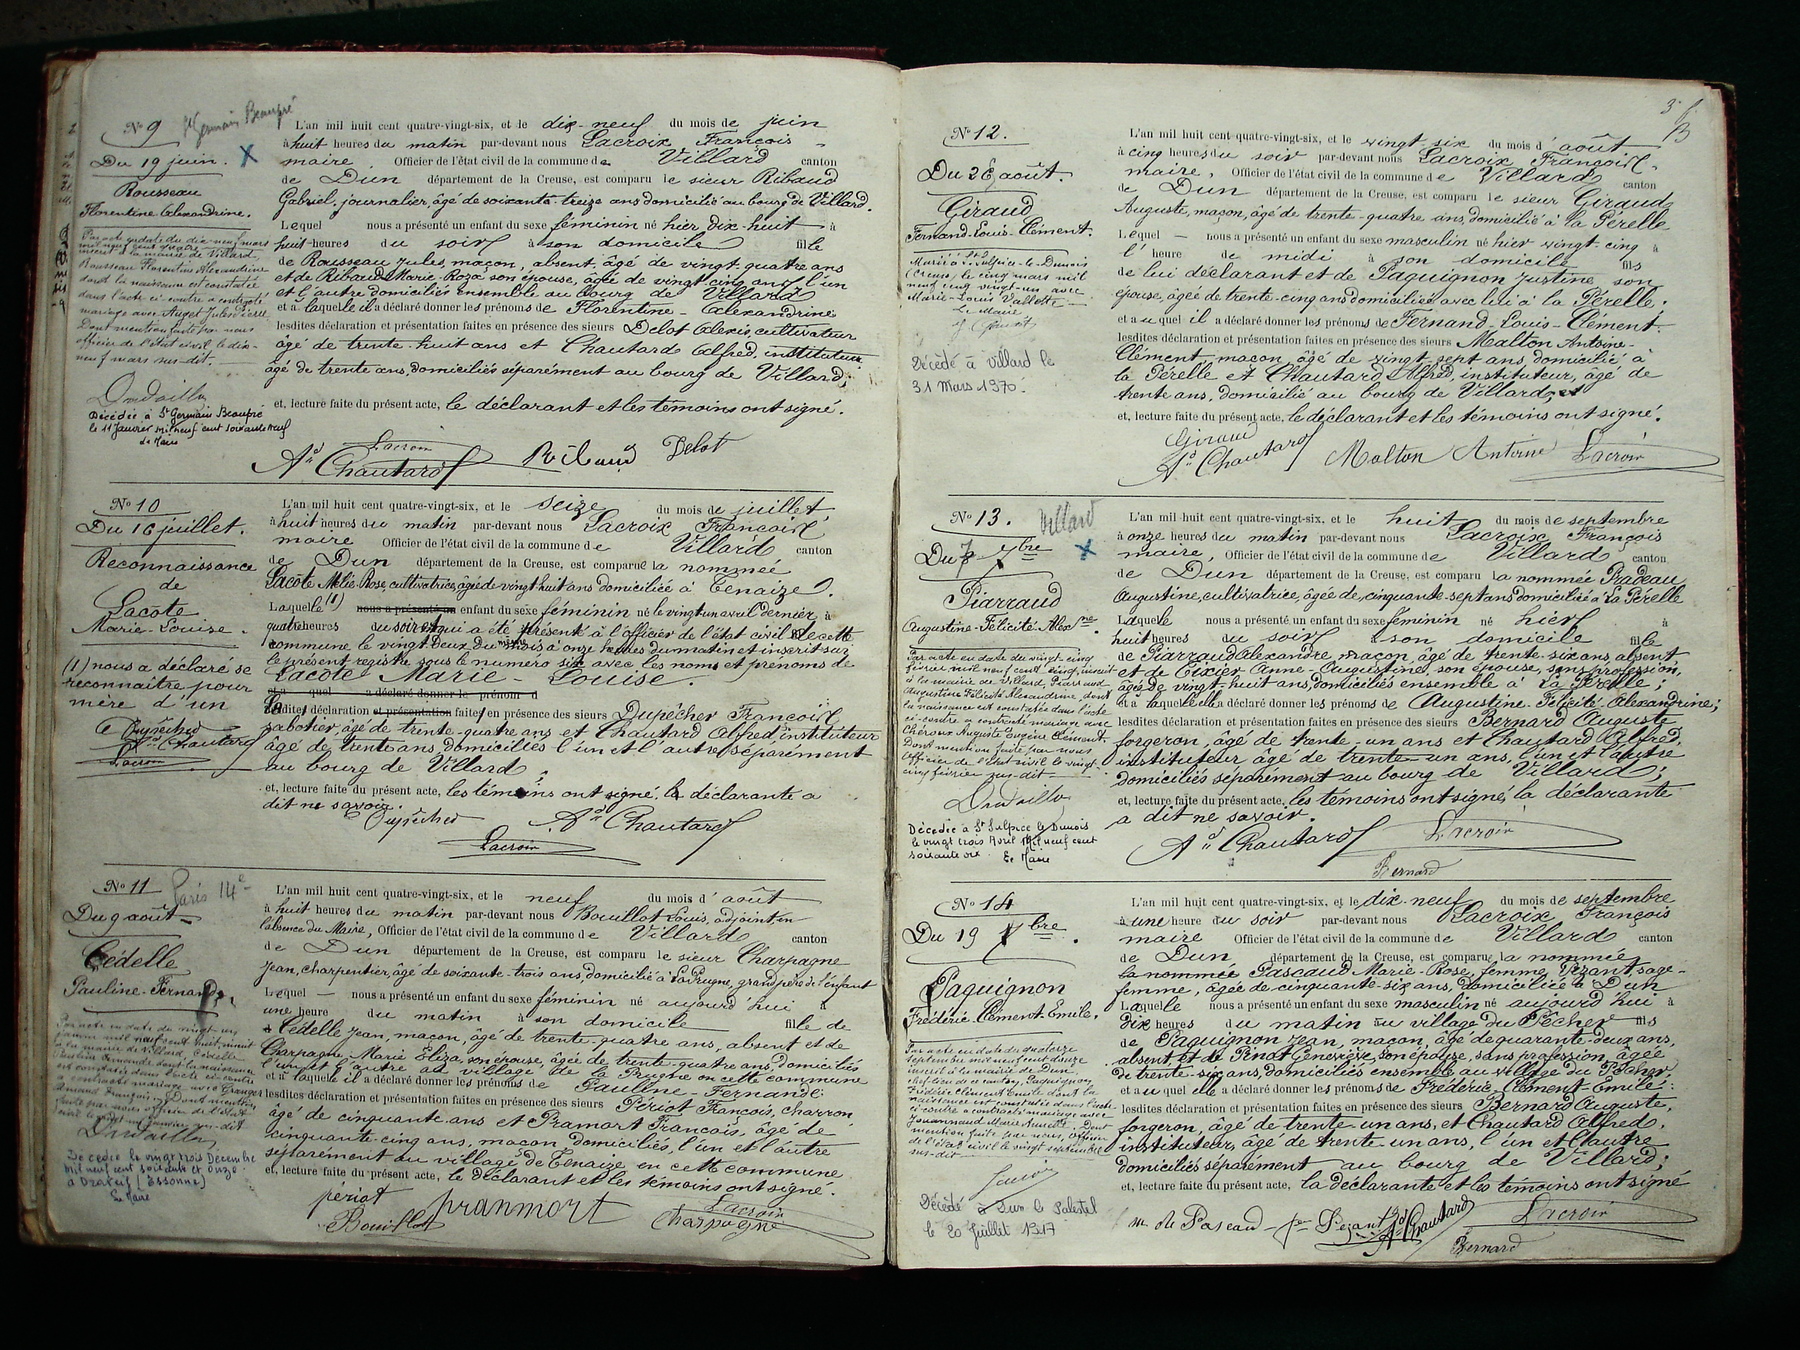 N° 9 St Germain Beaupré
Du 19 juin.
Rousseau
Florentine Alexandrine.
Par acte en date du dix-neuf mars
mil neuf cent quatre
inscrit à la mairie de Villard,
Rousseau Florentine Alexandrine
dont la naissance est constatée
dans l'acte ci-contre a contracté
mariage avec Auget Jules Pierre
Dont mention faite par nous
officier de l'état civil le dix-
neuf mars sus-dit.
Décédée à St Germain Beaupré
le 11 Janvier mil neuf cent soixante neuf
Le Maire
L'an mil huit cent quatre-vingt-six, et le dix-neuf du mois de juin
à huit heures du matin par-devant nous Lacroix François
maire, Officier de l'état civil de la commune de Villard canton
de Dun département de la Creuse, est comparu le sieur Ribaud
Gabriel, journalier, âgé de soixante-treize ans domicilié au bourg de Villard.
Lequel nous a présenté un enfant du sexe féminin né hier dix-huit à
huit heures du soir à son domicile fille
de Rousseau Jules, maçon, absent, âgé de vingt-quatre ans
et de Ribaud Marie-Roza son épouse, âgée de vingt cinq ans, l'un
et l'autre domiciliés ensemble au bourg de Villard
et à laquelle il a déclaré donner les prénoms de Florentine-Alexandrine
lesdites déclaration et présentation faites en présence des sieurs Delot Alexis, cultivateur
âgé de trente-huit ans et Chautard Alfred, instituteur
âgé de trente ans, domiciliés séparément au bourg de Villard;
et, lecture faite du présent acte, le déclarant et les témoins ont signé.
Lacroix
Ad Chautard Ribaud Delot
N° 10
Du 16 juillet.
Reconnaissance
de
Lacôte
Marie-Louise.
(1) nous a déclaré se
reconnaître pour
mère d'un
Dupêcher
Ad Chautard
Lacroix
L'an mil huit cent quatre-vingt-six, et le seize du mois de juillet
à huit heures du matin par-devant nous Lacroix François
maire Officier de l'état civil de la commune de Villard canton
de Dun département de la Creuse, est comparue la nommée
Lacôte Mélie Rose, cultivatrice, âgée de vingt huit ans domiciliée à Tenaize.
Laquelle (1) nous a présenté un enfant du sexe féminin né le vingt un avril dernier, à
quatre heures du soir et qui a été présenté à l'officier de l'état civil de cette
commune le vingt deux du même mois à onze heures du matin et inscrit sur
le présent registre sous le numéro six avec les noms et prénoms de
Lacôte Marie-Louise.
et a quel a déclaré donner le prénom d
Ladite déclaration et présentation faite en présence des sieurs Dupêcher François
sabotier, âgé de trente-quatre ans et Chautard Alfred instituteur
âgé de trente ans, domiciliés l'un et l'autre séparément
au bourg de Villard;
et, lecture faite du présent acte, les témoins ont signé, la déclarante a
dit ne savoir.
Dupêcher Ad Chautard
Lacroix
N° 11 Paris 14e
Du 9 août
Cédelle
Pauline-Fernande.
Par acte en date du vingt un
janvier mil neuf cent huit, inscrit
à la mairie de Villard, Cédelle
Pauline Fernande dont la naissance
est constatée dans l'acte ci-contre
a contracté mariage avec
Dont mention
faite par nous officier de l'état
civil le vingt un janvier sus-dit
Décédée le vingt trois Décembre
mil neuf cent soixante et onze
à Draveil (Essonne)
Le Maire
L'an mil huit cent quatre-vingt-six, et le neuf du mois d'août
à huit heures du matin par-devant nous Bouillot Louis, adjoint en
l'absence du Maire, Officier de l'état civil de la commune de Villard canton
de Dun département de la Creuse, est comparu le sieur Charpagne
Jean, charpentier, âgé de soixante-trois ans, domicilié à La Prugne, grand père de l'enfant
Lequel nous a présenté un enfant du sexe féminin né aujourd'hui à
une heure du matin à son domicile fille de
Cédelle Jean, maçon, âgé de trente-quatre ans, absent et de
Charpagne Marie Eliza, son épouse, âgée de trente-quatre ans, domiciliés
l'un et l'autre au village de la Prugne en cette commune
et à laquelle il a déclaré donner les prénoms de Pauline-Fernande
lesdites déclaration et présentation faites en présence des sieurs Périot François, charron
âgé de cinquante ans et Pramort François, âgé de
cinquante-cinq ans, maçon domiciliés, l'un et l'autre
séparément au village de Tenaize en cette commune
et, lecture faite du présent acte, le déclarant et les témoins ont signé.
périot pranmort Lacroix
Bouillot Charpagne
3e f.
B
N° 12.
Du 26 août.
Giraud
Fernand-Louis-Clément.
Marié à St Sulpice-le-Dunois
(Creuse) le cinq mars mil
neuf cent vingt-un avec
Marie-Louise Vallette
Le Maire
Décédé à Villard le
31 Mars 1970.
L'an mil huit cent quatre-vingt-six, et le vingt-six du mois d'août
à cinq heures du soir par-devant nous Lacroix François
maire, Officier de l'état civil de la commune de Villard canton
de Dun département de la Creuse, est comparu le sieur Giraud
Auguste, maçon, âgé de trente-quatre ans, domicilié à la Pérelle
Lequel nous a présenté un enfant du sexe masculin né hier vingt-cinq à
l'heure de midi à son domicile fils
de lui déclarant et de Paquignon Justine son
épouse, âgée de trente-cinq ans domiciliée avec lui à la Pérelle.
et auquel il a déclaré donner les prénoms de Fernand-Louis-Clément.
lesdites déclaration et présentation faites en présence des sieurs Malton Antoine-
Clément, maçon, âgé de vingt sept ans, domicilié à
la Pérelle et Chautard Alfred, instituteur, âgé de
trente ans, domicilié au bourg de Villard, et
et, lecture faite du présent acte, le déclarant et les témoins ont signé.
Giraud
Ad Chautard Malton Antoine Lacroix
N° 13. Villard
Du 8 7bre
Piarraud
Augustine-Félicité-Alexne.
Par acte en date du vingt-cinq
février mil neuf cent cinq, inscrit
à la mairie de Villard, Piarraud
Augustine Félicité Alexandrine dont
la naissance est constatée dans l'acte
ci-contre a contracté mariage avec
Chéroux Auguste Eugène Clément.
Dont mention faite par nous
Officier de l'état civil le vingt-
cinq février sus-dit
Décédée à St Sulpice le Dunois
le vingt trois Avril Mil neuf cent
soixante six
Le Maire
L'an mil huit cent quatre-vingt-six, et le huit du mois de septembre
à onze heures du matin par-devant nous Lacroix François
maire, Officier de l'état civil de la commune de Villard canton
de Dun département de la Creuse, est comparu la nommée Pradeau
Augustine, cultivatrice, âgée de cinquante-sept ans domiciliée à la Pérelle
Laquelle nous a présenté un enfant du sexe féminin né hier à
huit heures du soir à son domicile fille
de Piarraud Alexandre, maçon, âgé de trente-six ans, absent
et de Tixier Anne-Augustine, son épouse, sans profession,
âgée de vingt-huit ans, domiciliés ensemble à la Pérelle;
et à laquelle elle a déclaré donner les prénoms de Augustine-Félicité-Alexandrine;
lesdites déclaration et présentation faites en présence des sieurs Bernard Auguste
forgeron, âgé de trente-un ans et Chautard Alfred,
instituteur âgé de trente-un ans, l'un et l'autre
domiciliés séparément au bourg de Villard;
et, lecture faite du présent acte, les témoins ont signé, la déclarante
a dit ne savoir.
Ad Chautard Lacroix
Bernard
N° 14
Du 19 7bre.
Paquignon
Frédéric-Clément-Emile.
Par acte en date du quatorze
septembre mil neuf cent douze
inscrit à la mairie de Dun
chef lieu de ce canton, Paquignon
Frédéric Clément Emile dont la
naissance est constatée dans l'acte
ci-contre a contracté mariage avec
Jouannaud Marie Annette. Dont
mention faite par nous, Officier
de l'état civil le vingt septembre
sus-dit
Décédé à Dun le Palestel
le 20 Juillet 1917
L'an mil huit cent quatre-vingt-six, et le dix-neuf du mois de septembre
à une heure du soir par-devant nous Lacroix François
maire Officier de l'état civil de la commune de Villard canton
de Dun département de la Creuse, est comparu la nommée
La nommée Pascaud Marie-Rose, femme Pezant, sage-
femme, âgée de cinquante-six ans, domiciliée à Dun
Laquelle nous a présenté un enfant du sexe masculin né aujourd'hui à
dix heures du matin au village du Pêcher fils
de Paquignon Jean, maçon, âgé de quarante-deux ans,
absent et de Pinot Geneviève, son épouse, sans profession, âgée
de trente-six ans, domiciliés ensemble au village du Pêcher,
et auquel elle a déclaré donner les prénoms de Frédéric-Clément-Emile:
lesdites déclaration et présentation faites en présence des sieurs Bernard Auguste,
forgeron, âgé de trente-un ans, et Chautard Alfred,
instituteur, âgé de trente-un ans, l'un et l'autre
domiciliés séparément au bourg de Villard;
et, lecture faite du présent acte, la déclarante et les témoins ont signé
Ad Chautard Lacroix
Bernard